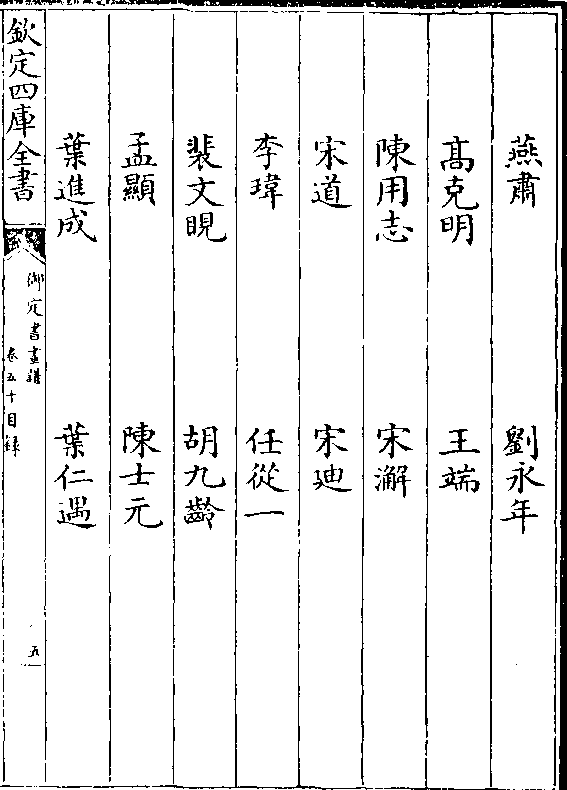 燕肅　劉永年
髙克明　王端
陳用志　宋澥
宋道　宋廸
李瑋　任從一
裴文睍　胡九齡
孟顯　陳士元
葉進成　葉仁遇
欽定四庫全書
御定書畫譜
卷五十目録
五